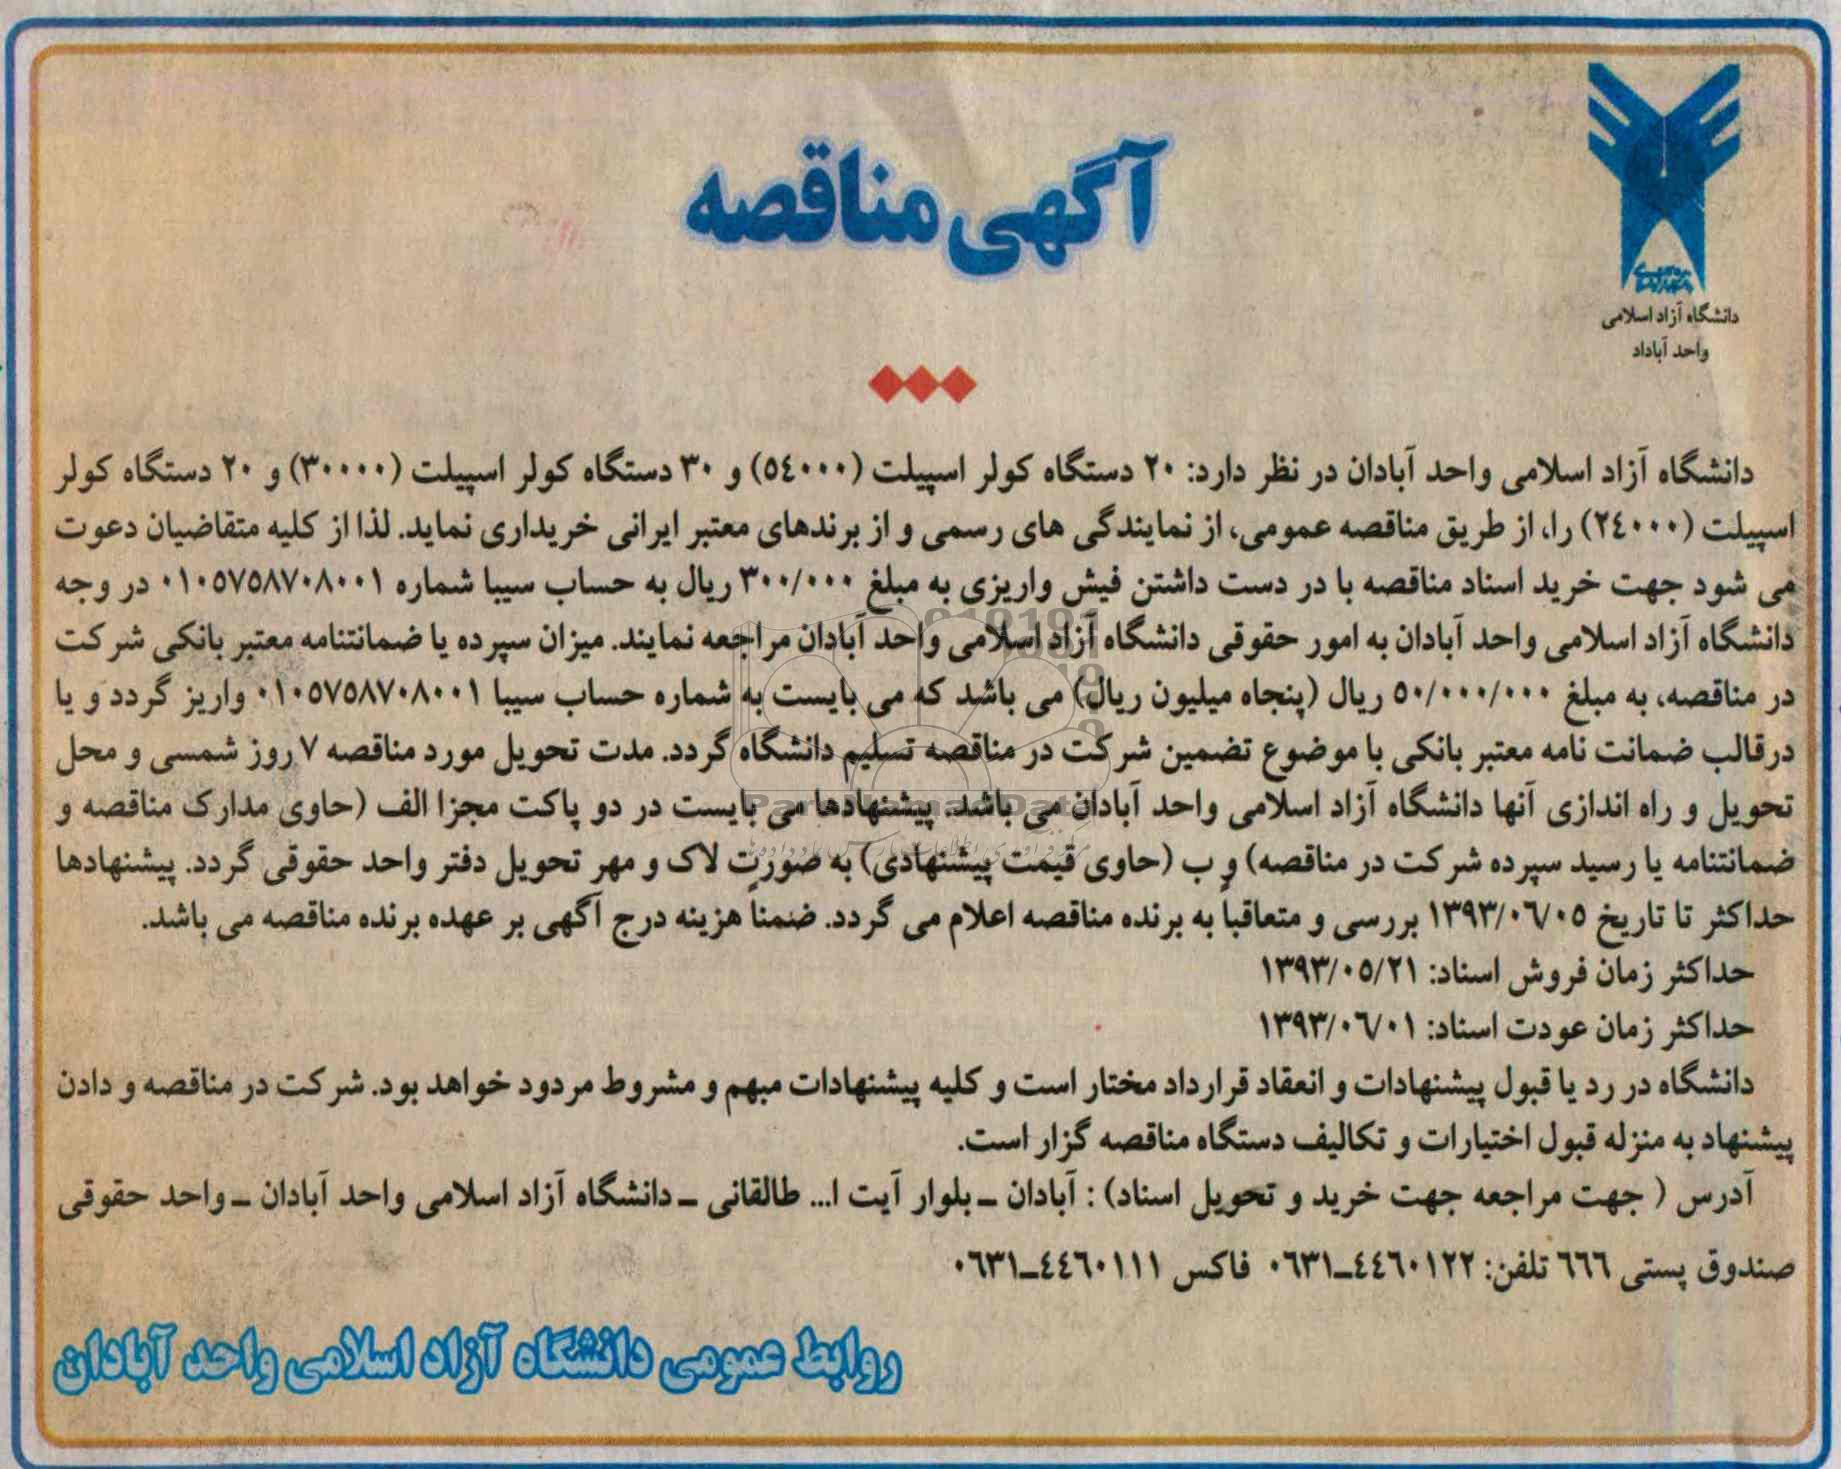 آگهی مناقصه
دانشگاه آزاد اسلامی
واحد آباداد
دانشگاه آزاد اسلامی واحد آبادان در نظر دارد: ۲۰ دستگاه کولر اسپیلت (۵٤۰۰۰) و ۳۰ دستگاه کولر اسپیلت (۳۰۰۰۰) و ۲۰ دستگاه کولر
اسپیلت (۲٤۰۰۰) را، از طریق مناقصه عمومی، از نمایندگی های رسمی و از برندهای معتبر ایرانی خریداری نماید. لذا از کلیه متقاضیان دعوت
می شود جهت خرید اسناد مناقصه با در دست داشتن فیش واریزی به مبلغ ۳۰۰/۰۰۰ ریال به حساب سیبا شماره ۰۱۰۵۷۵۸۷۰۸۰۰۱ در وجه
دانشگاه آزاد اسلامی واحد آبادان به امور حقوقی دانشگاه آزاد اسلامی واحد آبادان مراجعه نمایند. میزان سپرده یا ضمانتنامه معتبر بانکی شرکت
در مناقصه، به مبلغ ۵۰/۰۰۰/۰۰۰ ریال (پنجاه میلیون ریال) می باشد که می بایست به شماره حساب سیبا ۰۱۰۵۷۵۸۷۰۸۰۰۱ واریز گردد و یا
درقالب ضمانت نامه معتبر بانکی با موضوع تضمین شرکت در مناقصه تسلیم دانشگاه گردد. مدت تحویل مورد مناقصه ۷ روز شمسی و محل
تحویل و راه اندازی آنها دانشگاه آزاد اسلامی واحد آبادان می باشد. پیشنهادها می بایست در دو پاکت مجزا الف (حاوی مدارک مناقصه و
ضمانتنامه یا رسید سپرده شرکت در مناقصه) و ب (حاوی قیمت پیشنهادی) به صورت لاک و مهر تحویل دفتر واحد حقوقی گردد. پیشنهادها
حداکثر تا تاریخ ۱۳۹۳/۰٦/۰۵ بررسی و متعاقباً به برنده مناقصه اعلام می گردد. ضمناً هزینه درج آگهی بر عهده برنده مناقصه می باشد.
حداکثر زمان فروش اسناد: ۱۳۹۳/۰۵/۲۱
حداکثر زمان عودت اسناد: ۱۳۹۳/۰٦/۰۱
دانشگاه در رد یا قبول پیشنهادات و انعقاد قرارداد مختار است و کلیه پیشنهادات مبهم و مشروط مردود خواهد بود. شرکت در مناقصه و دادن
پیشنهاد به منزله قبول اختیارات و تکالیف دستگاه مناقصه گزار است.
آدرس ( جهت مراجعه جهت خرید و تحویل اسناد) : آبادان ـ بلوار آیت ا... طالقانی ـ دانشگاه آزاد اسلامی واحد آبادان ـ واحد حقوقی
صندوق پستی ٦٦٦ تلفن: ٤٤٦۰۱۲۲ـ۰٦۳۱ فاکس ٤٤٦۰۱۱۱ـ۰٦۳۱
روابط عمومی دانشگاه آزاد اسلامی واحد آبادان